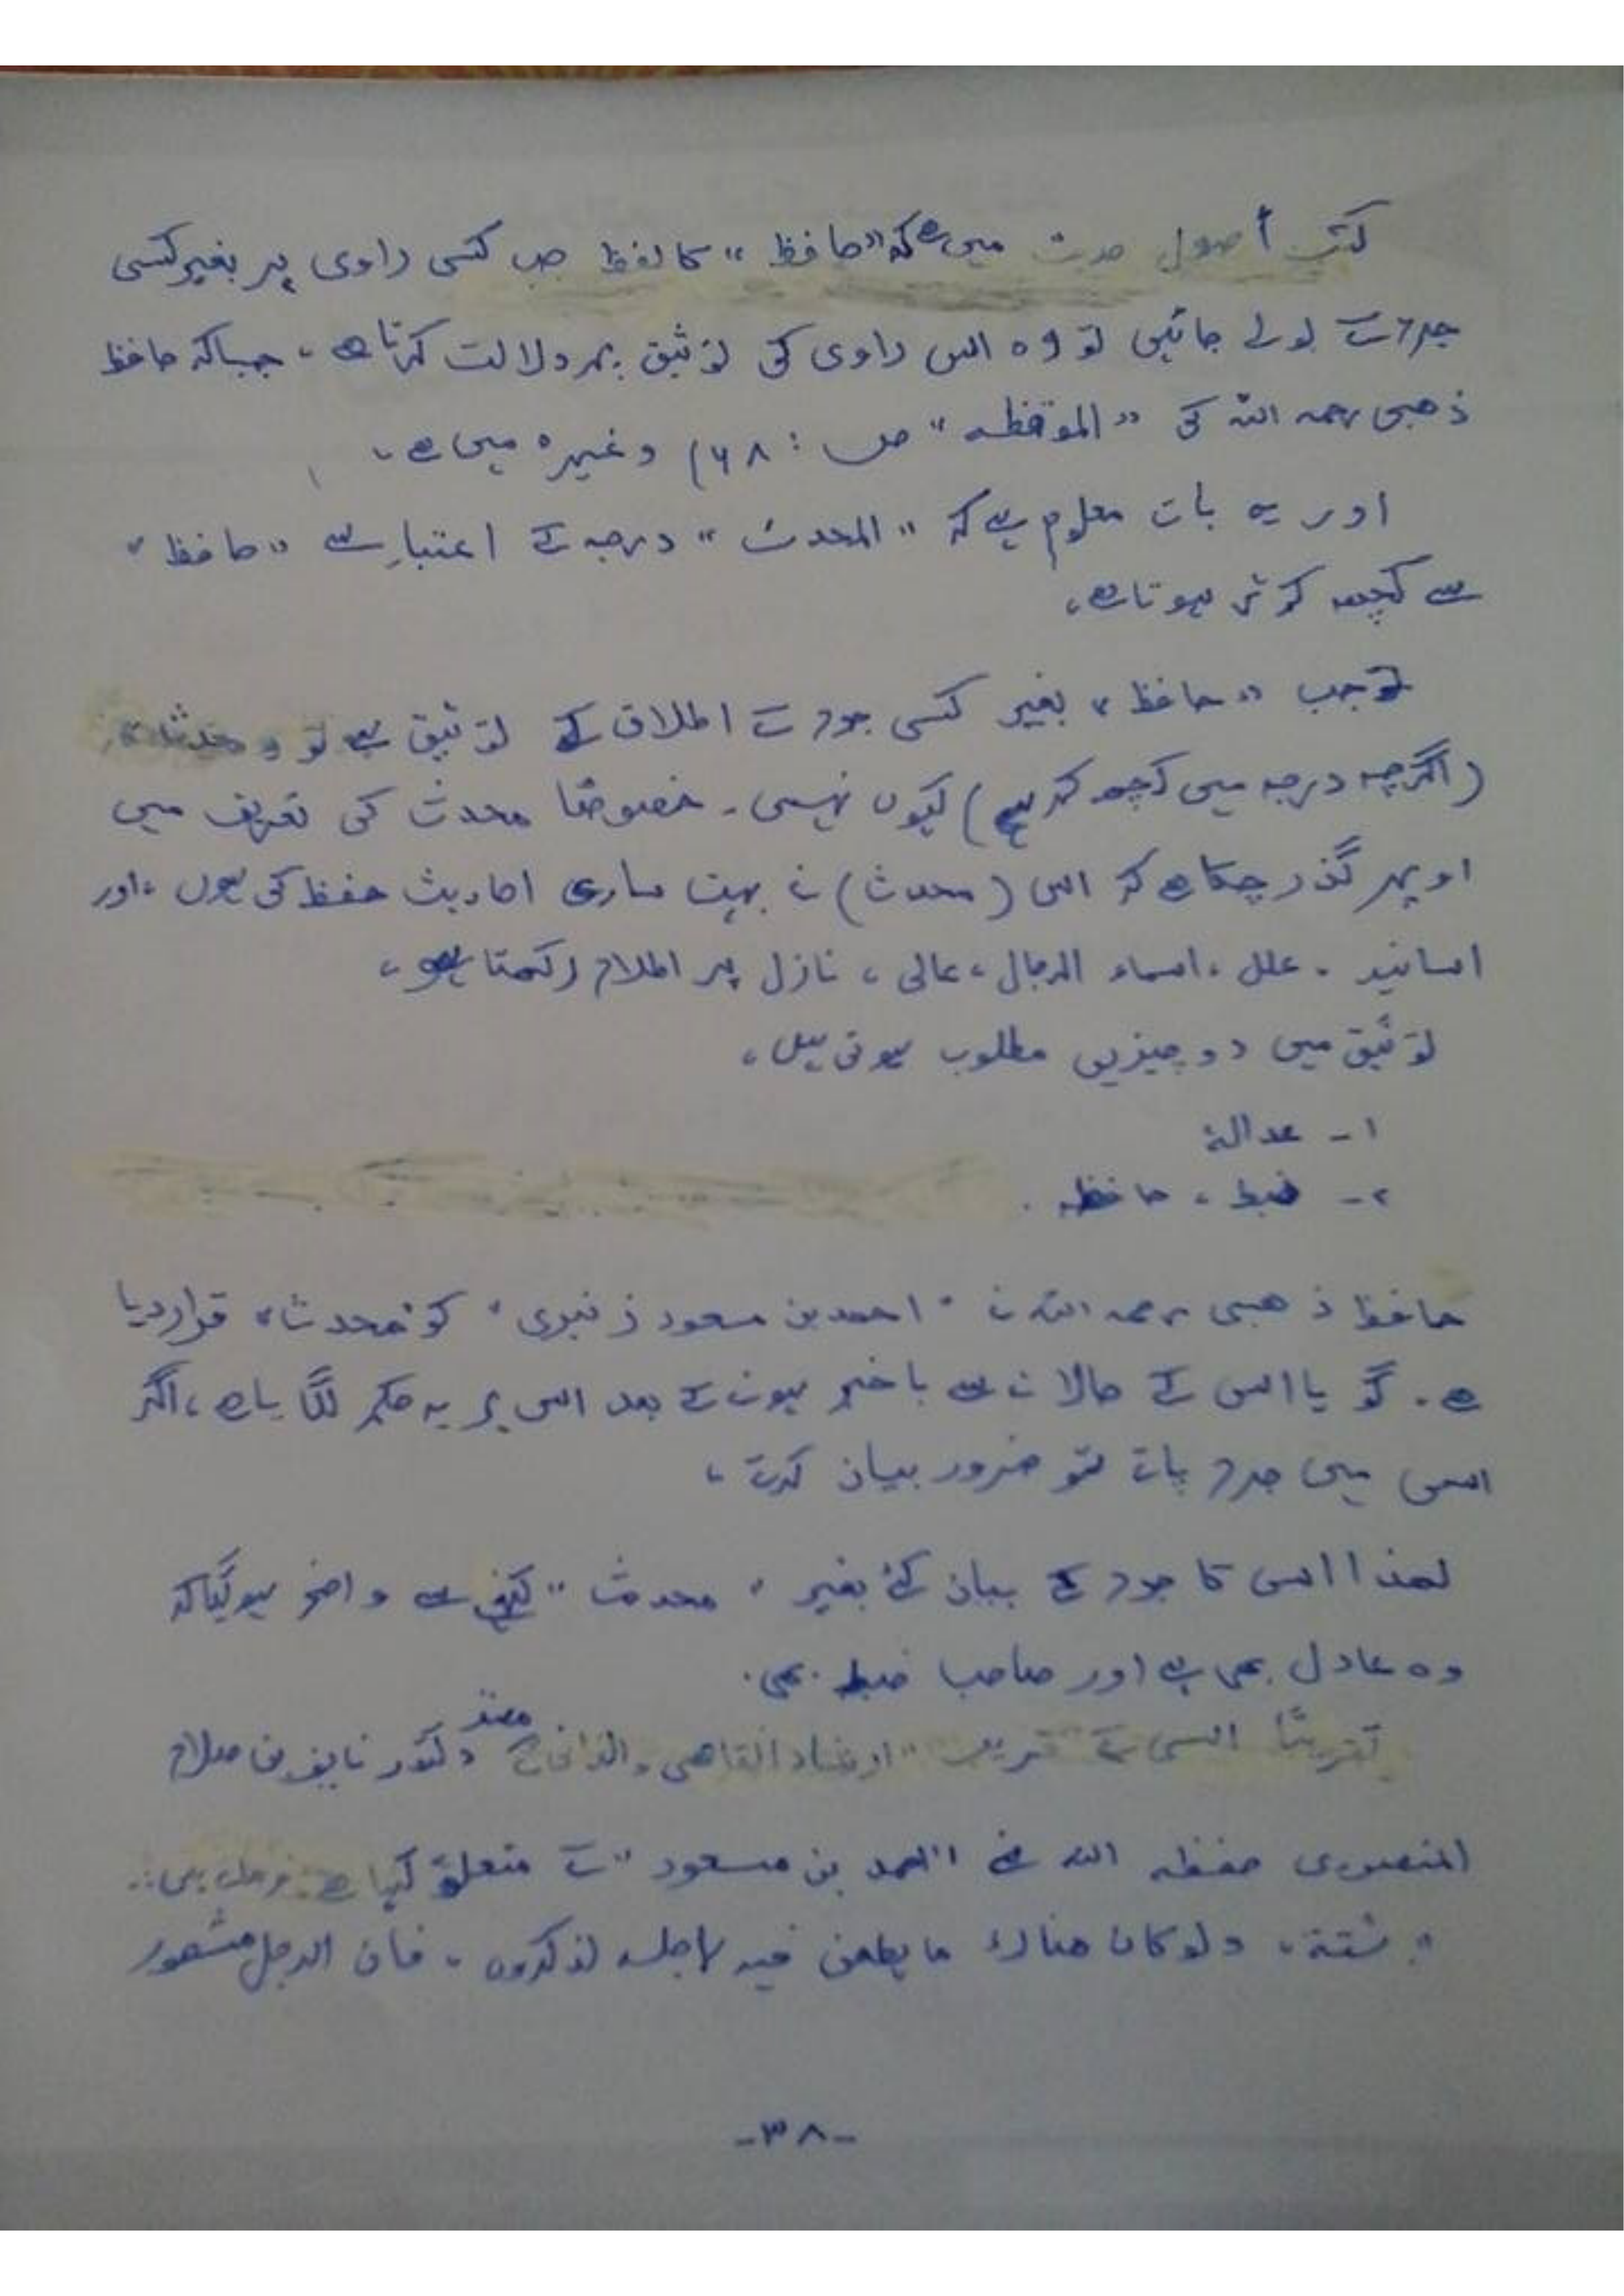 کتب أصول حدیث میں ہے کہ "حافظ" کا لفظ جب کسی راوی پر بغیر کسی
جرح کے بولے جائیں تو وہ اس راوی کی توثیق پر دلالت کرتا ہے، جیسا کہ حافظ
ذھبی رحمہ اللہ کی "الموقظہ" ص: ۶۸) وغیرہ میں ہے،
اور یہ بات معلوم ہے کہ "المحدث" درجہ کے اعتبار سے "حافظ"
سے کچھ کم تر ہوتا ہے،
تو جب "حافظ" بغیر کسی جرح کے اطلاق کے توثیق ہے تو "محدث"
(اگرچہ درجہ میں کچھ کم ہے) کیوں نہیں۔ خصوصًا محدث کی تعریف میں
اوپر گذر چکا ہے کہ اس (محدث) نے بہت ساری احادیث حفظ کی ہوں، اور
اسانید ، علل ، اسماء الرجال ، عالی ، نازل پر اطلاع رکھتا ہو،
توثیق میں دو چیزیں مطلوب ہوتی ہیں،
۱ - عدالۃ
۲ - ضبط ، حافظہ .
حافظ ذھبی رحمہ اللہ نے "احمد بن مسعود زنبری" کو "محدث" قرار دیا
ہے. گویا اس کے حالات سے باخبر ہونے کے بعد اس پر یہ حکم لگایا ہے، اگر
اس میں جرح پاتے تو ضرور بیان کرتے ،
لھذا اس کا جرح کے بیان کئے بغیر "محدث" کہنے سے واضح ہوگیا کہ
وہ عادل بھی ہے اور صاحب ضبط بھی.
تقریبًا اسی کے قریب "ارشاد القاصی والدانی" کے دکتور نایف بن صلاح
المنصوری حفظہ اللہ نے "احمد بن مسعود" کے متعلق کہا ہے:
"ثقة، ولو كان هناك ما يطعن فيه لأجله لذكروه ، فان الرجل مشهور
-۳۸-